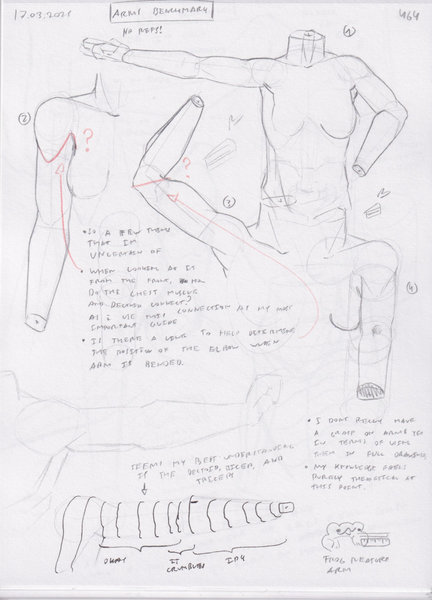 17.03.2021
ARMS BENCHMARK
464
NO REFS!
1
2
?
?
3
4
• IS A FEW THINGS
THAT IM
UNCERTAIN OF
• WHEN LOOKING AT IT
FROM THE FRONT,
DO THE CHEST MUSCLE
AND DELTOID CONNECT?
AS I USE THIS CONNECTION AS MY MOST
IMPORTANT GUIDE
• IS THERE A LINE TO HELP DETERMINE
THE POSITION OF THE ELBOW WHEN
ARM IS BENDED.
• I DONT REALLY HAVE
A GRASP ON ARMS YET
IN TERMS OF USING
THEM IN FULL DRAWINGS
• MY KNOWLEDGE FEELS
PURELY THEORETICAL AT
THIS POINT.
SEEMS MY BEST UNDERSTANDING
IS THE DELTOID, BICEP, AND
TRICEPS
OKAY
IT
CRUMBLES
IDK
FROG
ARM